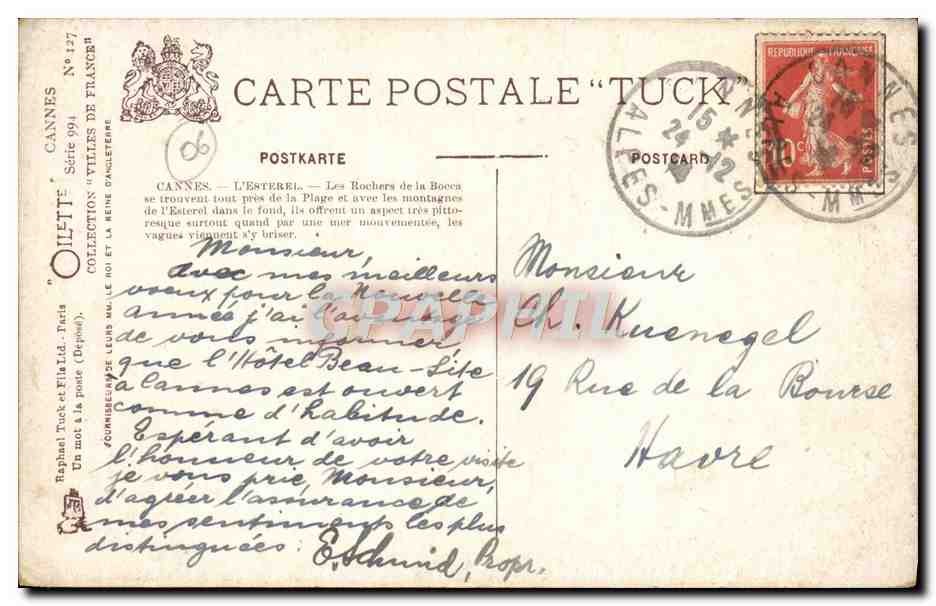 "OILETTE" CANNES
Série 994 No. 127.
COLLECTION "VILLES DE FRANCE"
Raphael Tuck et Fils Ltd. - Paris
Un mot à la poste (Déposé).
FOURNISSEURS DE LEURS MM. LE ROI ET LA REINE D'ANGLETERRE
CARTE POSTALE "TUCK"
06
POSTKARTE
POSTCARD
CANNES. — L'ESTEREL. — Les Rochers de la Bocca
se trouvent tout près de la Plage et avec les montagnes
de l'Esterel dans le fond, ils offrent un aspect très pitto-
resque surtout quand par une mer mouvementée, les
vagues viennent s'y briser.
Monsieur,
avec mes meilleurs
voeux pour la Nouvelle
année j'ai l'avantage
de vous informer
que l'Hôtel Beau-Site
à Cannes est ouvert
comme d'habitude.
Espérant d'avoir
l'honneur de votre visite
je vous prie, Monsieur,
d'agréer l'assurance de
mes sentiments les plus
distinguées:
E. Schmid, Propr.
Monsieur
Ch. Kuenegel
19 Rue de la Bourse
Havre
REPUBLIQUE FRANÇAISE
10c
POSTES
CANNES
15 *
24 - 12
ALPES-MMES
CANNES
ALPES-MMES
CPAPHIL